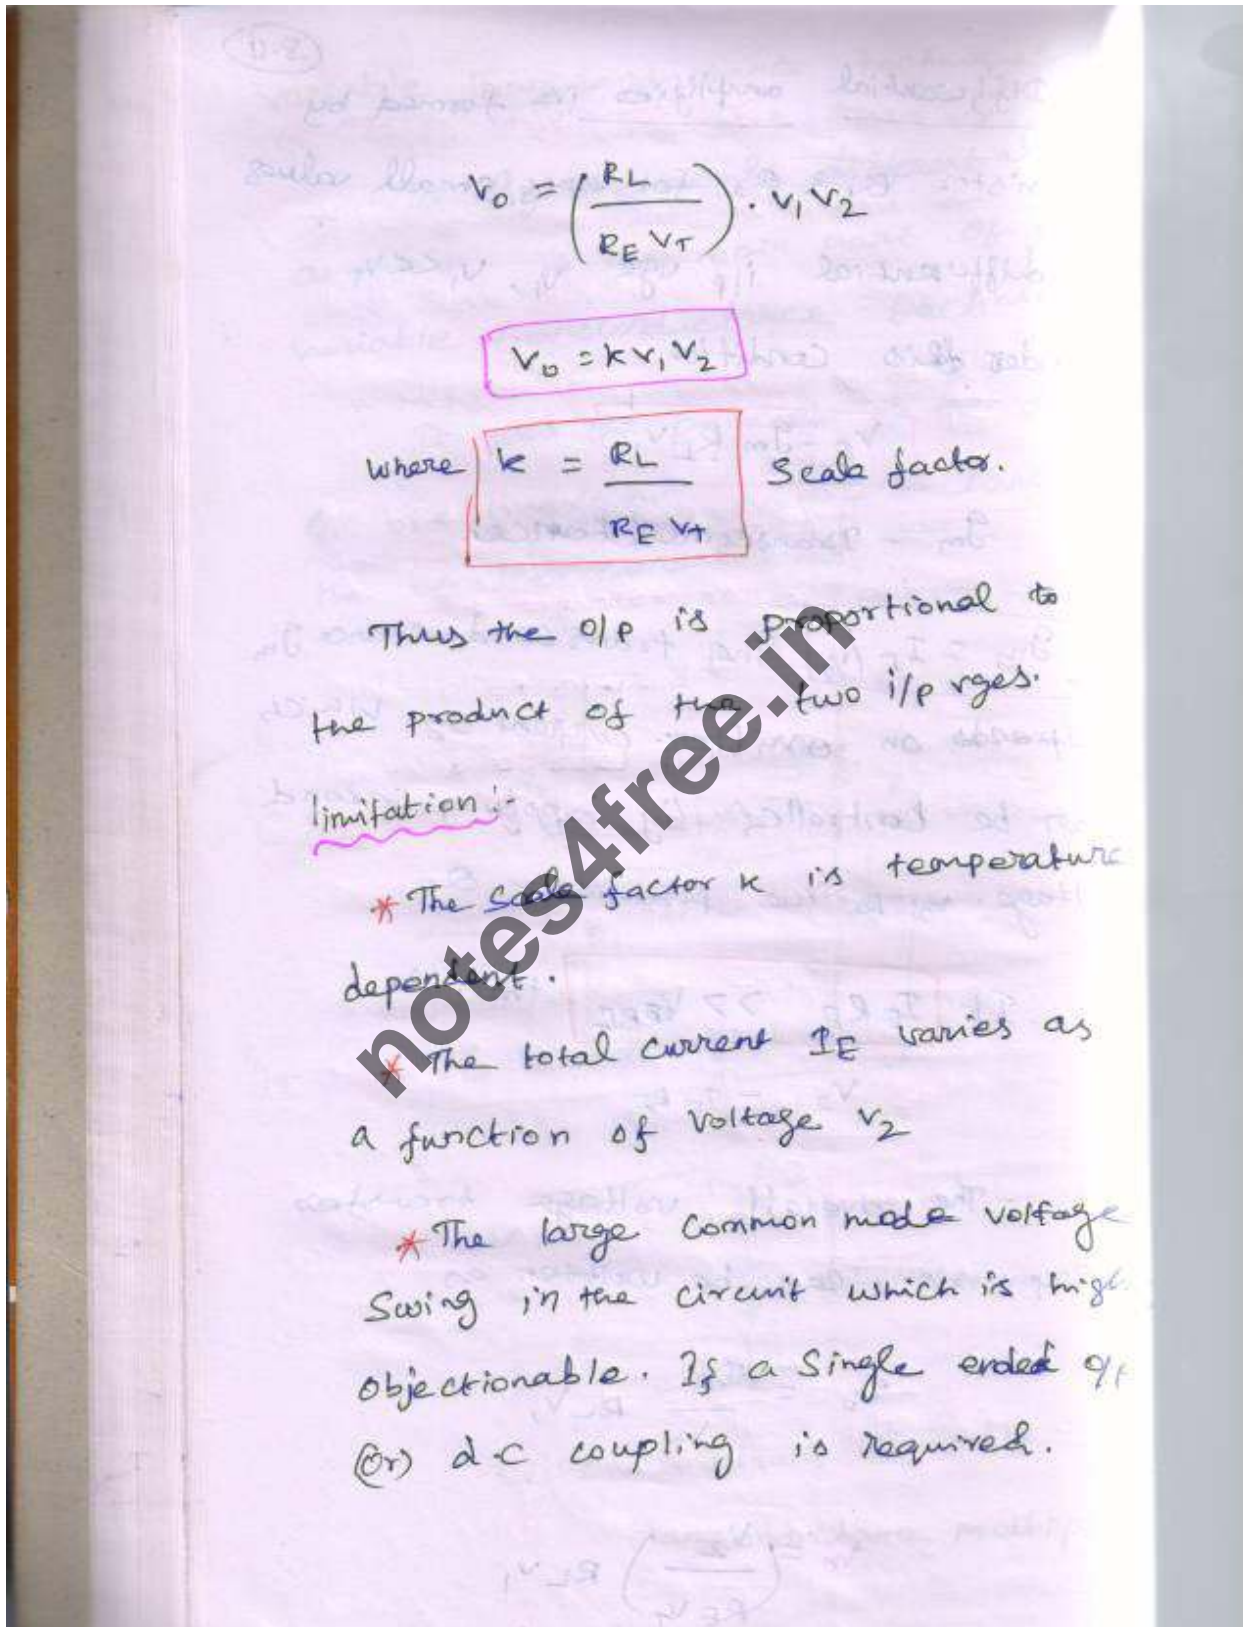 V₀ = (RL / RE VT) . V₁ V₂
V₀ = k V₁ V₂
where k = RL / RE VT Scale factor.
Thus the o/p is proportional to
the product of the two i/p vges.
limitation :-
* The scale factor k is temperature
dependent.
* The total current IE varies as
a function of voltage V₂
* The large common mode voltage
Swing in the circuit which is high
objectionable. If a single ended o/p
(or) d.c coupling is required.
notes4free.in